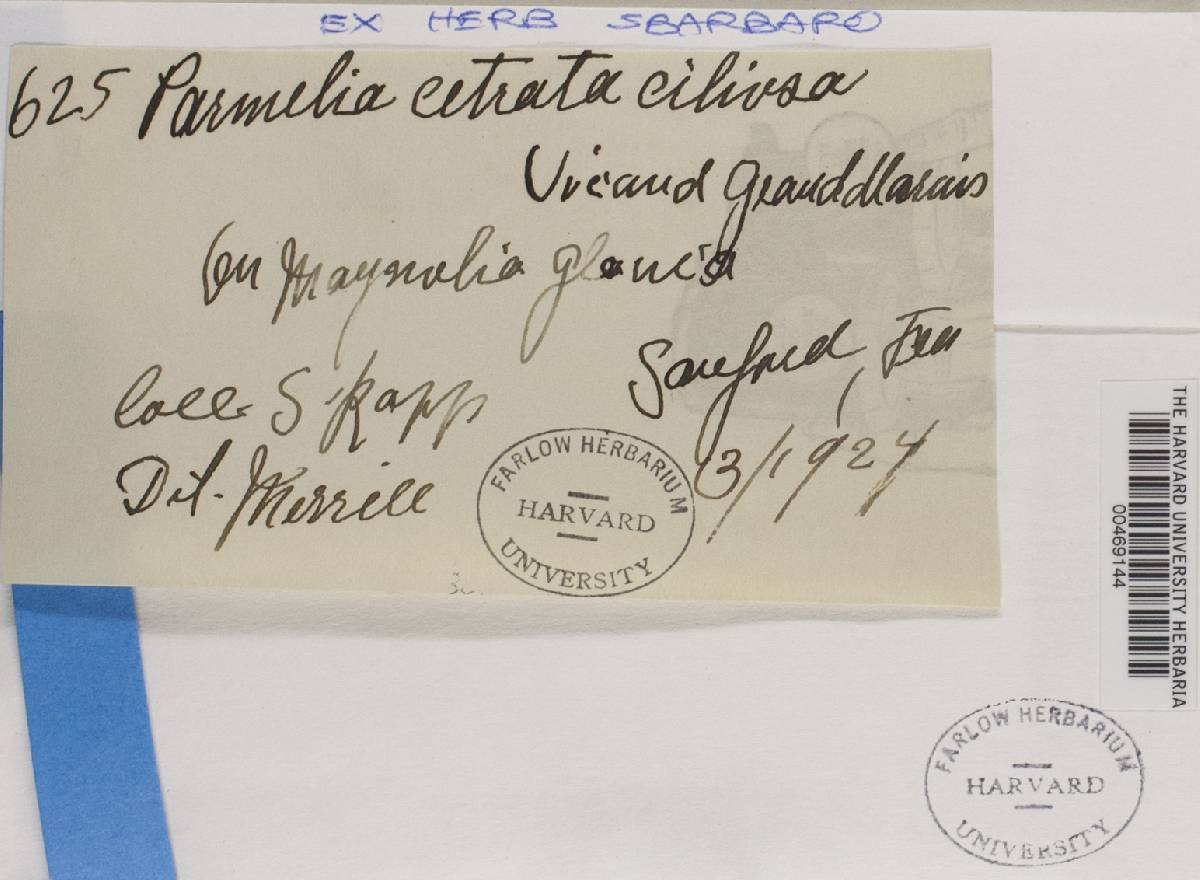 EX HERB SBARBARO
625 Parmelia cetrata ciliosa
Viaud Grand Marais
On Magnolia glauca
Sanford, Fla
Coll. S. Rapp
3/1924
Det. Merrill
FARLOW HERBARIUM
HARVARD
UNIVERSITY
THE HARVARD UNIVERSITY HERBARIA
00469144
FARLOW HERBARIUM
HARVARD
UNIVERSITY